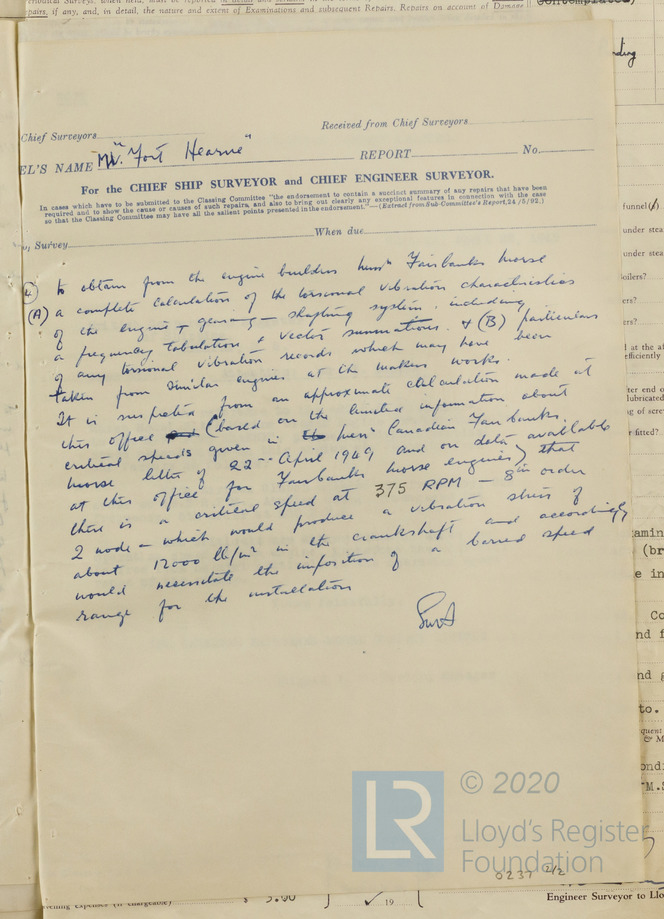 pairs, if any, and, in detail, the nature and extent of Examinations and subsequent Repairs. Repairs on account of Damage
nding
Received from Chief Surveyors
Chief Surveyors
EL'S NAME "MV. Fort Hearne" REPORT No.
For the CHIEF SHIP SURVEYOR and CHIEF ENGINEER SURVEYOR.
In cases which have to be submitted to the Classing Committee "the endorsement to contain a succinct summary of any repairs that have been
required and to show the cause or causes of such repairs, and also to bring out clearly any exceptional features in connection with the case
so that the Classing Committee may have all the salient points presented in the endorsement."—(Extract from Sub-Committee's Report, 24/5/92.)
Survey When due
4 to obtain from the engine builders Mess.rs Fairbanks Morse
(A) a complete calculation of the torsional vibration characteristics
of the engine + gearing – shafting system including
a frequency tabulation + vector summations. + (B) particulars
of any torsional vibration records which may have been
taken from similar engines at the makers works.
It is suspected from an approximate calculation made at
this office (based on the limited information about
critical speeds given in Mess.rs Canadian Fairbanks
Morse letter of 22 - April 1949 and on data available
at this office for Fairbanks Morse engines) that
there is a critical speed at 375 RPM – 8th order
2 node – which would produce a vibration stress of
about 12000 lb/in² in the crankshaft and accordingly
would necessitate the imposition of a barred speed
range for the installation
funnel(s)
under stea
under stea
boilers?
ers?
ers?
at the af
efficiently
ter end o
lubricated
g of scre
fitted?
amin
(br
e in
Co
nd f
nd g
to.
quent
& M
ondi
"M.S
© 2020
LR
Lloyd's Register
Foundation
0237 2/2
ening expenses (if chargeable) $ 5.00 19
Engineer Surveyor to Llo